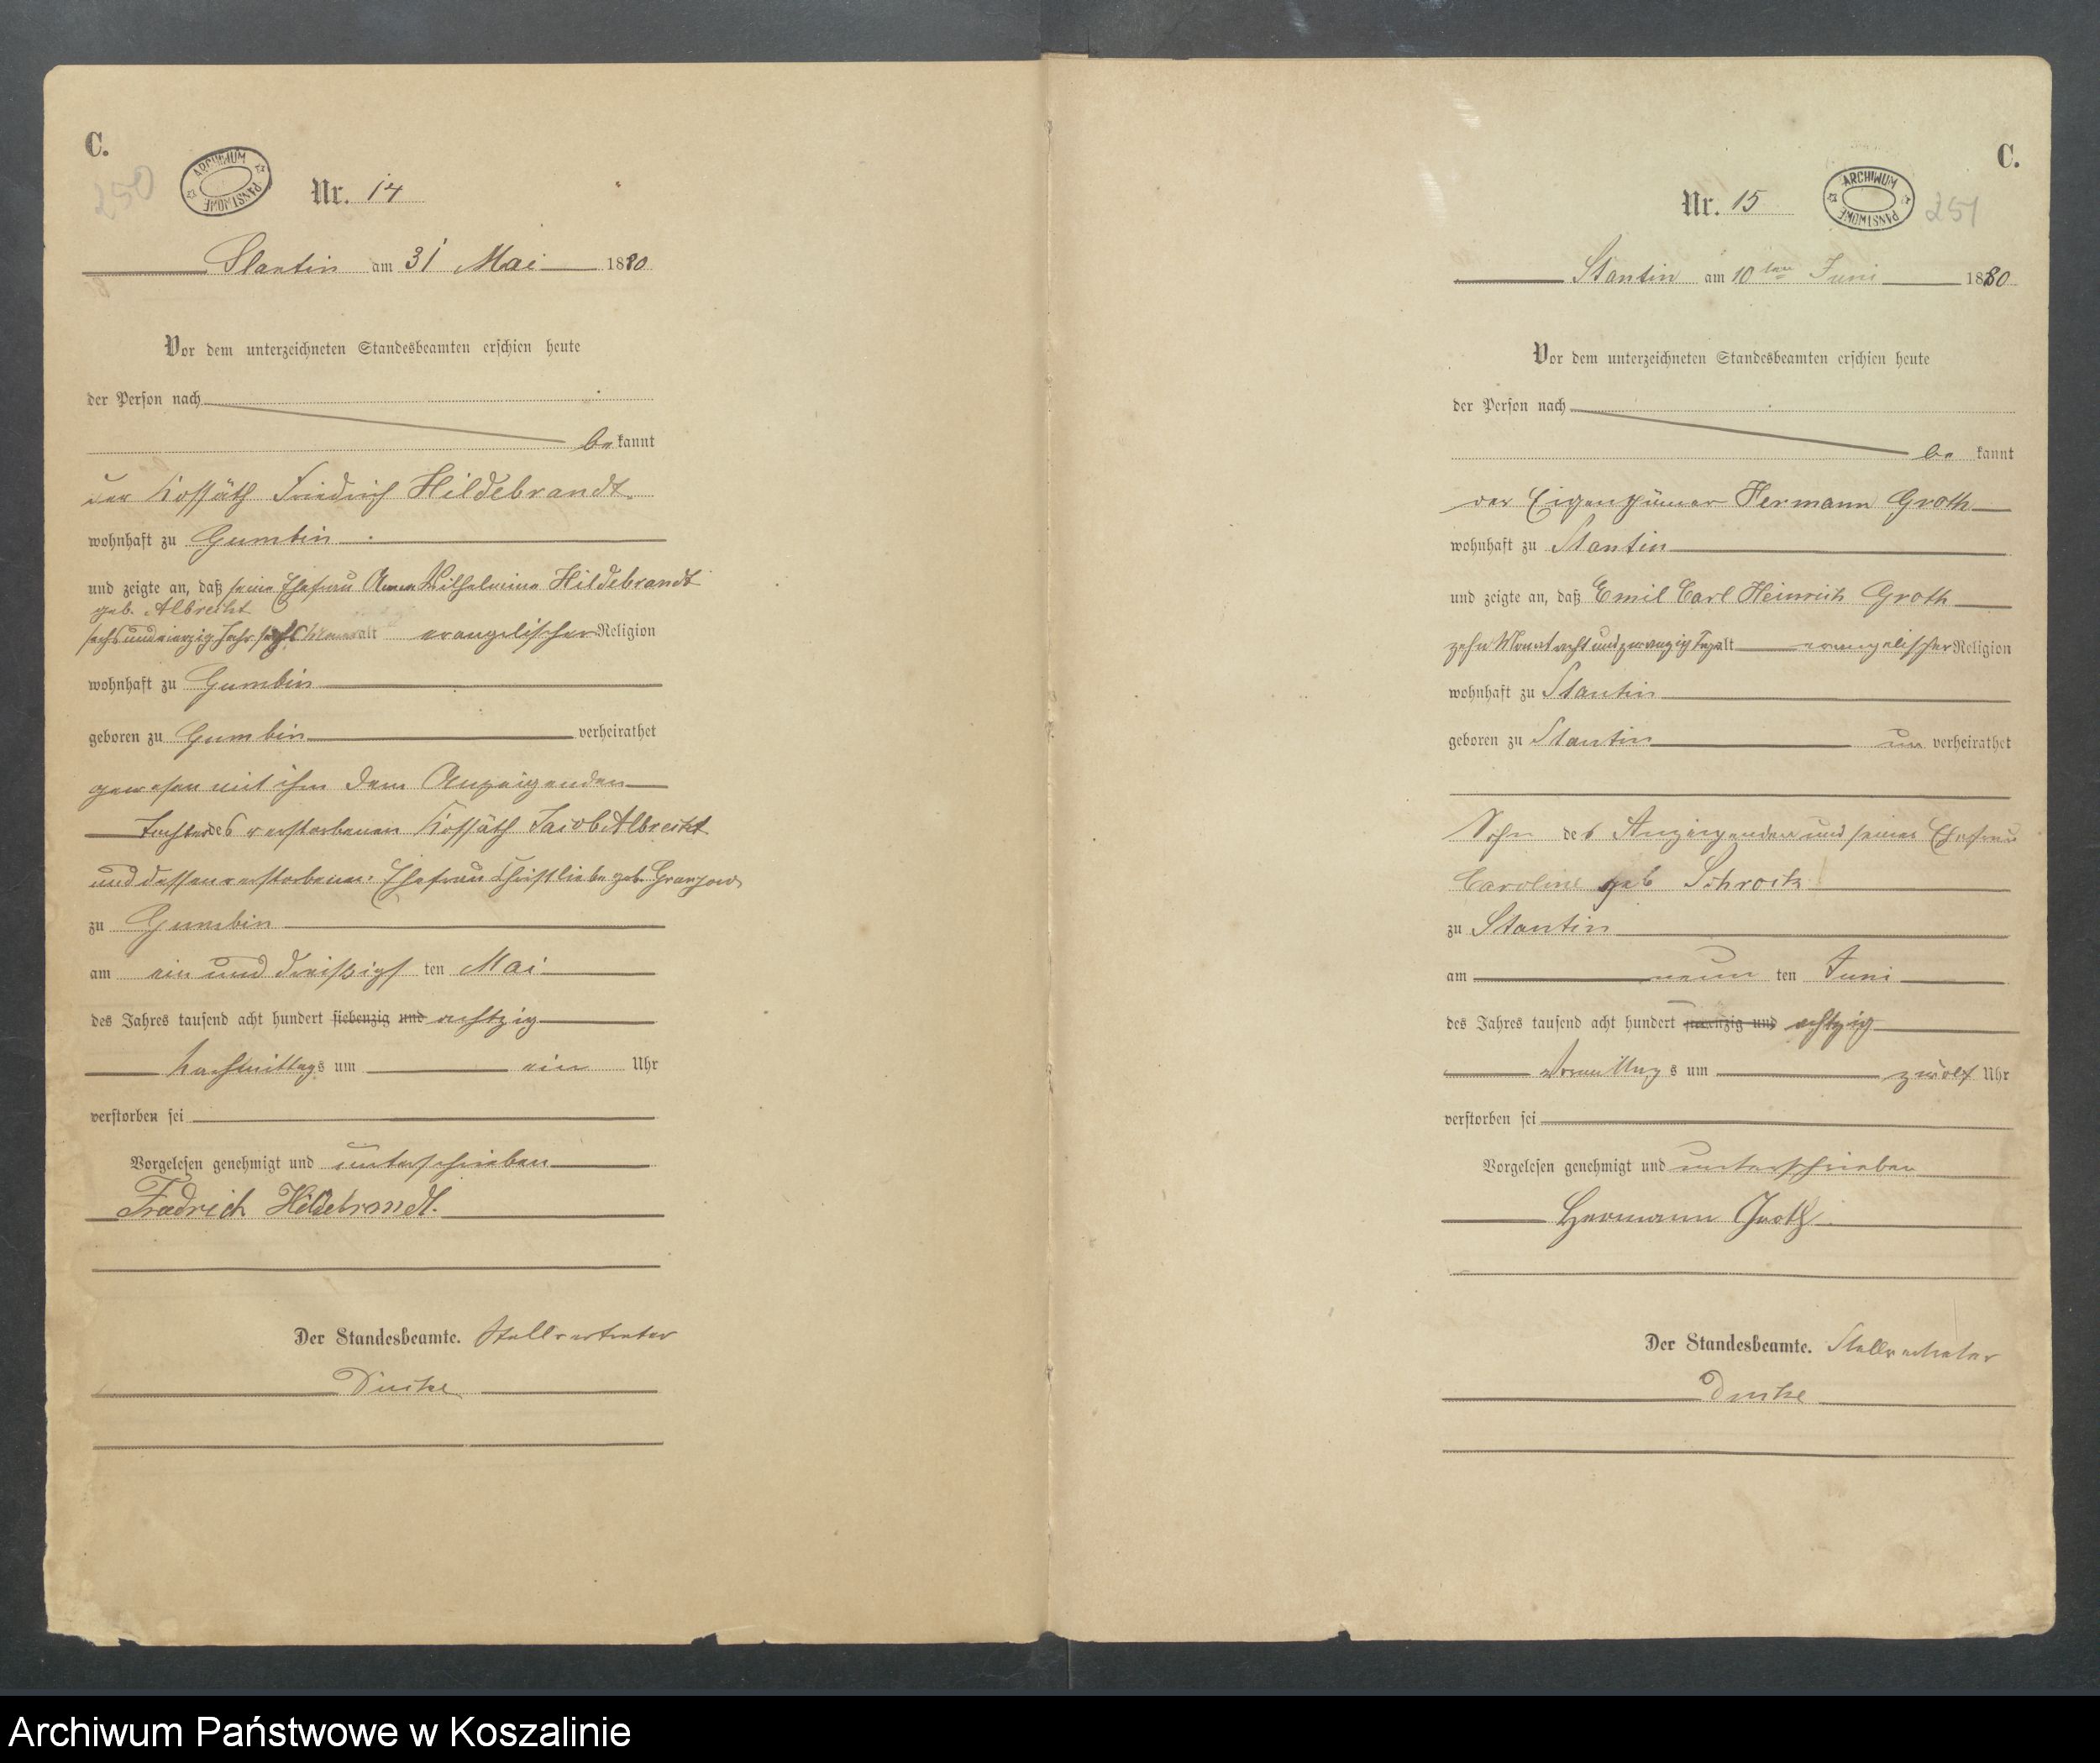 C.
250
ARCHIWUM PAŃSTWOWE
Nr. 14
Stantin am 31 Mai 1880
Vor dem unterzeichneten Standesbeamten erschien heute
der Person nach
bekannt
der Kossäth Friedrich Hildebrandt
wohnhaft zu Gumbin
und zeigte an, daß seine Ehefrau Anna Wilhelmine Hildebrandt
geb. Albrecht
sechsundvierzig Jahr sechs Monat alt evangelischer Religion
wohnhaft zu Gumbin
geboren zu Gumbin verheirathet
gewesen mit ihm dem Anzeigenden
Tochter des verstorbenen Kossäth Jacob Albrecht
und dessen verstorbener Ehefrau Christliebe geb. Granzow
zu Gumbin
am ein und dreißigsten Mai
des Jahres tausend acht hundert siebenzig und achtzig
Nachmittags um ein Uhr
verstorben sei
Vorgelesen genehmigt und unterschrieben
Friedrich Hildebrandt.
Der Standesbeamte. Stellvertreter
C.
Nr. 15
ARCHIWUM PAŃSTWOWE
251
Stantin am 10ten Juni 1880
Vor dem unterzeichneten Standesbeamten erschien heute
der Person nach
be kannt
der Eigenthümer Hermann Groth
wohnhaft zu Stantin
und zeigte an, daß Emil Carl Heinrich Groth
zehn Monat acht und zwanzig Tage alt evangelischer Religion
wohnhaft zu Stantin
geboren zu Stantin un verheirathet
Sohn des Anzeigenden und seiner Ehefrau
Caroline geb Schrock
zu Stantin
am neun ten Juni
des Jahres tausend acht hundert siebenzig und achtzig
Vormittags um zwölf Uhr
verstorben sei
Vorgelesen genehmigt und unterschrieben
Hermann Groth
Der Standesbeamte. Stellvertreter
Archiwum Państwowe w Koszalinie